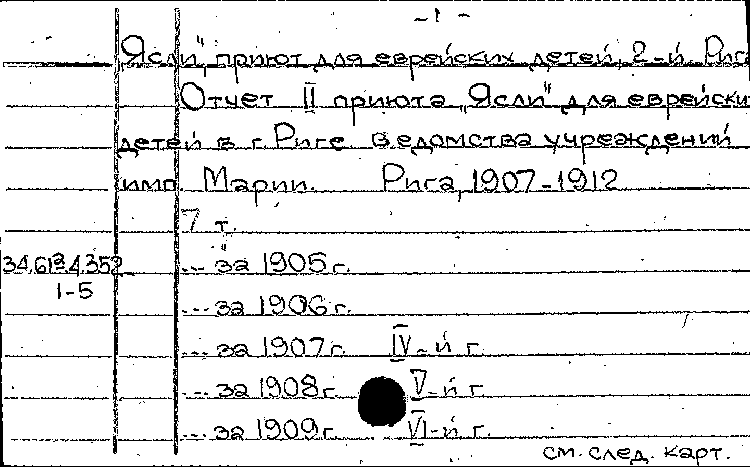 - 1 -
"Ясли", приют для еврейских детей, 2-й. Рига
Отчет II приюта "Ясли" для еврейски
детей в г. Риге ведомства учреждений
имп. Марии. Рига, 1907-1912
7 т.
34.61 4.352 ... за 1905 г.
1-5
... за 1906 г.
... за 1907 г. IV-й г.
... за 1908 г. V-й г.
... за 1909 г. VI-й г.
см. след. карт.